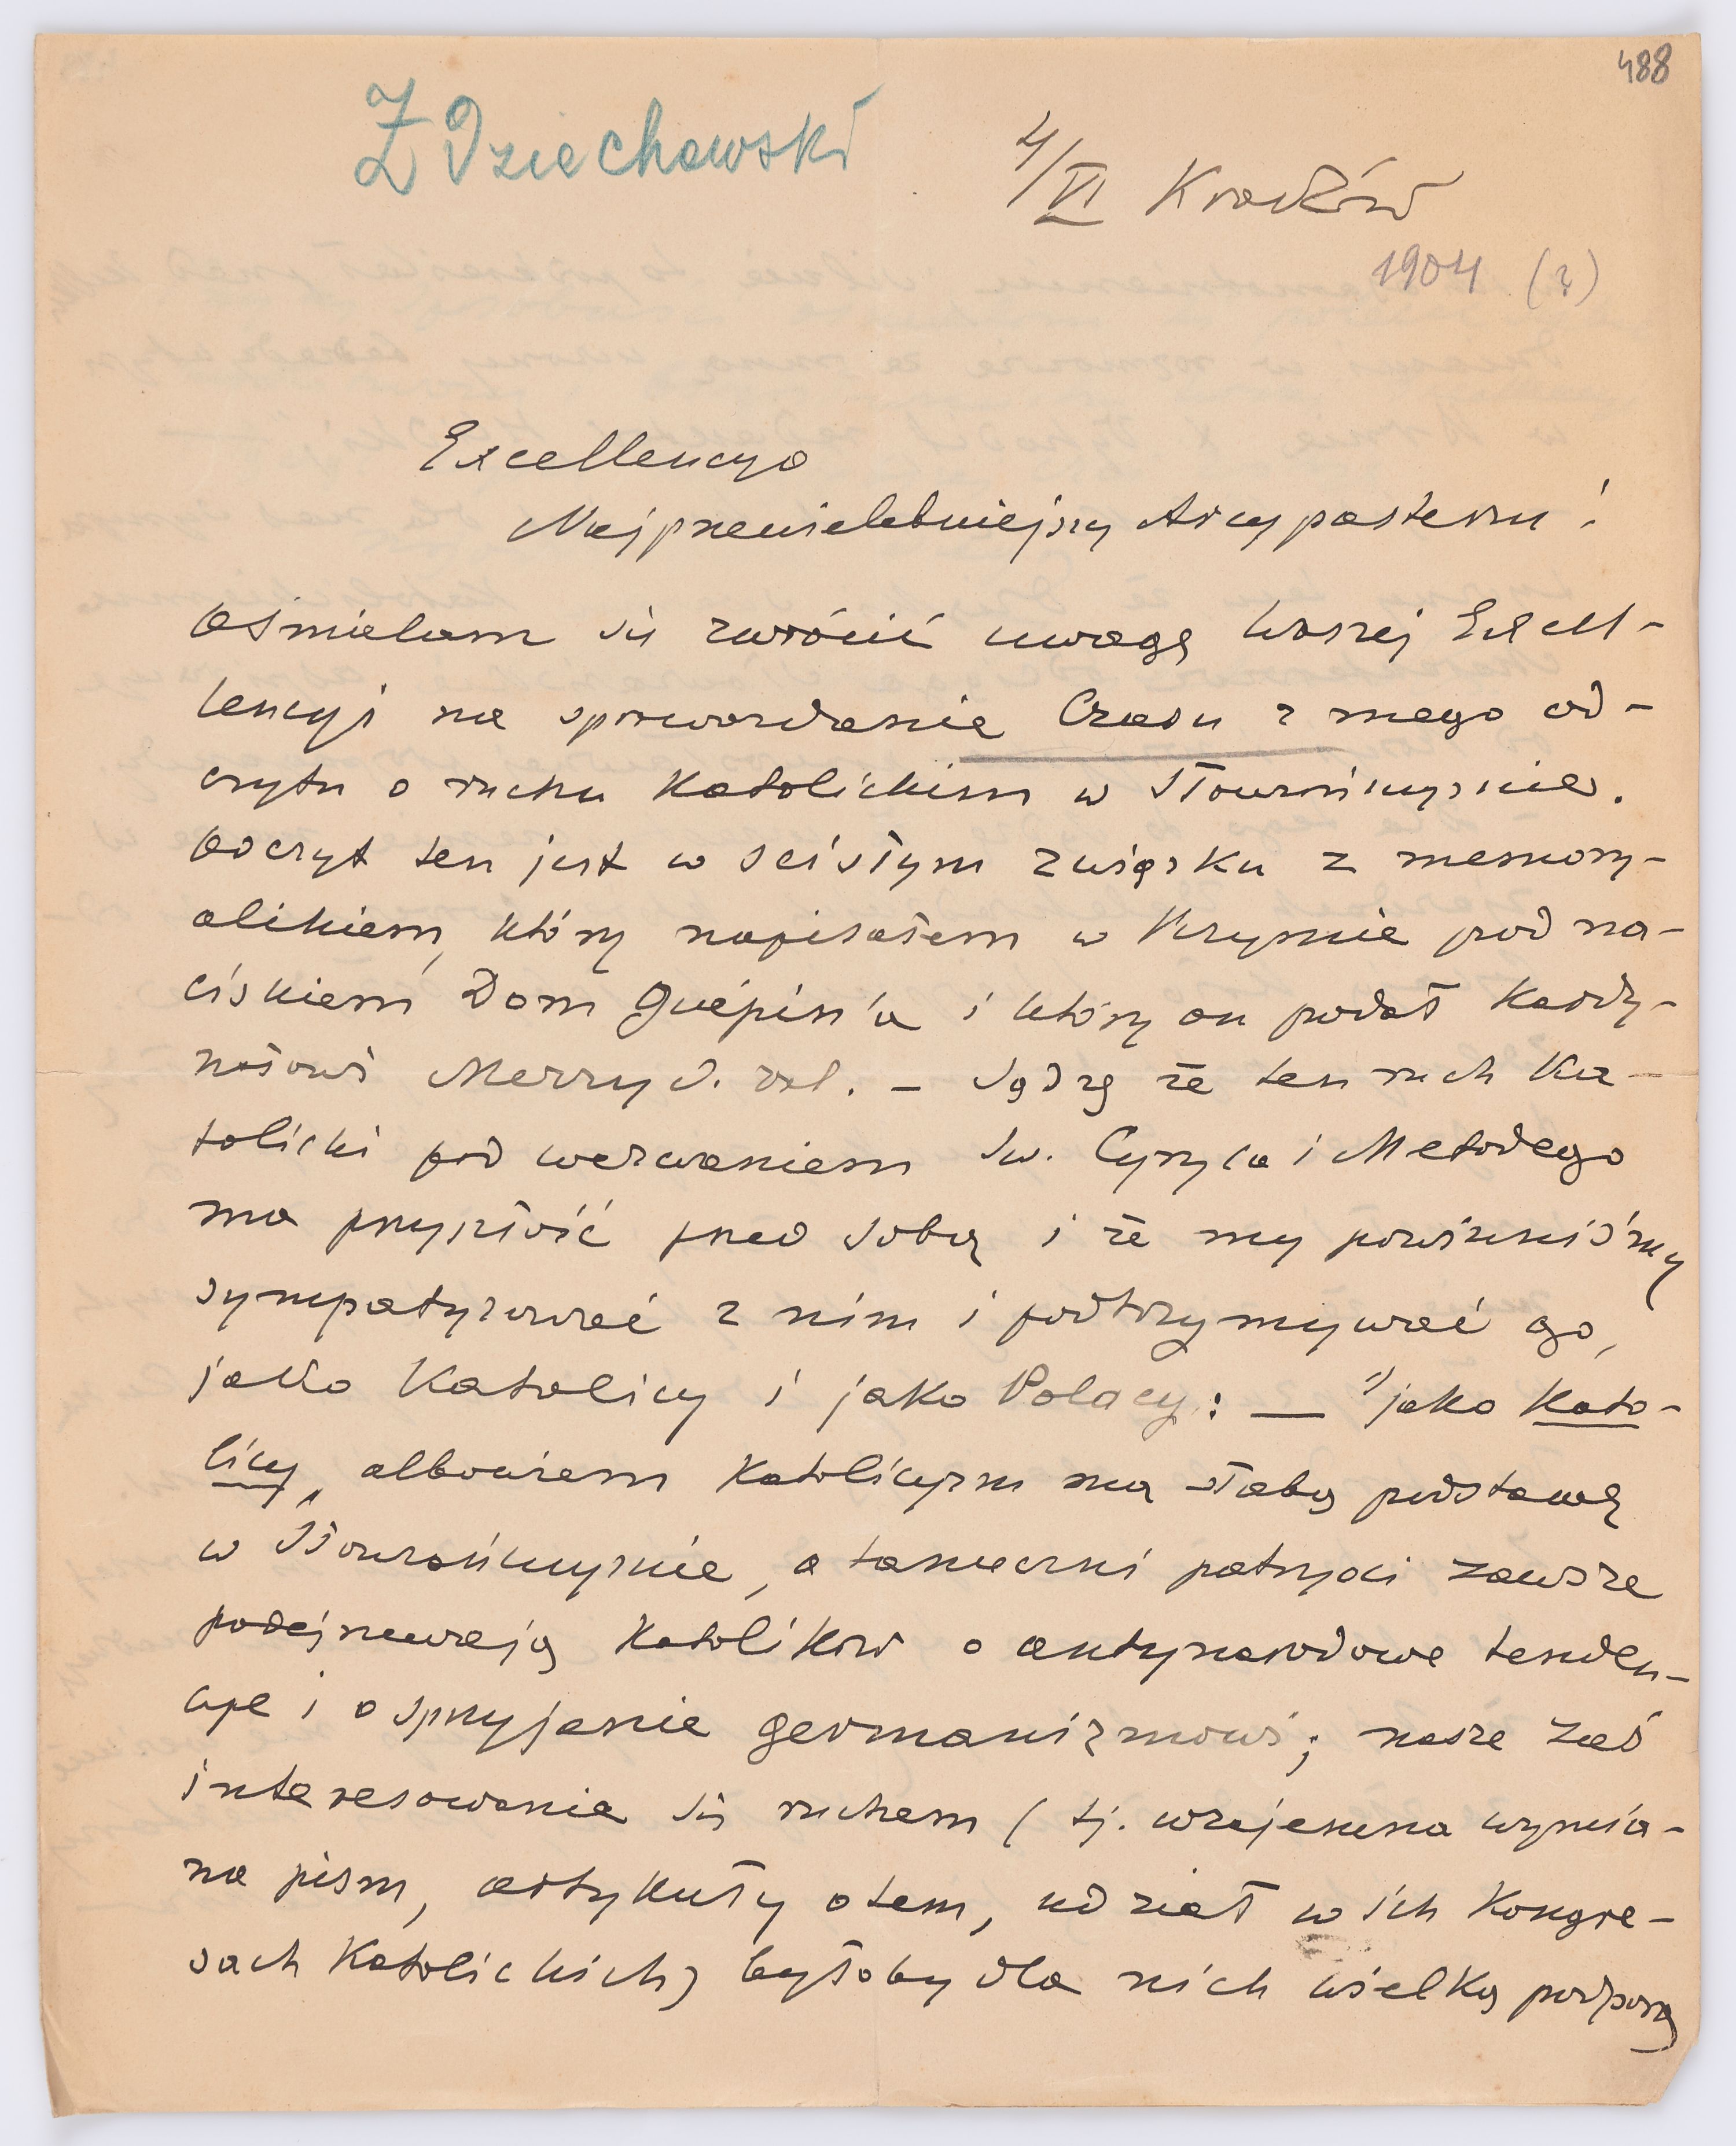 488
Zdziechowski
4/VI Kraków
1904 (?)
Excellencyo
Najprzewielebniejszy Arcypasterzu!
Ośmielam się zwrócić uwagę Waszej Excel-
lencyi na sprawozdanie Czasu z mego od-
czytu o ruchu katolickim w Słowiańszczyznie.
Odczyt ten jest w ścisłym związku z memory-
alikiem, który napisałem w Rzymie pod na-
ciskiem Dom Guépin'a i który on podał Kardy-
nałowi Merry d. Val. – Sądzę że ten ruch ka-
tolicki pod wezwaniem św. Cyryla i Metodego
ma przyszłość przed sobą i że my powinniśmy
sympatyzować z nim i podtrzymywać go,
jako Katolicy i jako Polacy: — 1) jako Kato-
licy, albowiem Katolicyzm ma słabą podstawę
w Słowiańszczyznie, a tameczni patryoci zawsze
podejrzewają katolików o antynarodowe tenden-
cye i o sprzyjanie germanizmowi; nasze zaś
interesowanie się ruchem (tj. wzajemna wymia-
na pism, artykuły o tem, udział w ich kongre-
sach katolickich) byłoby dla nich wielką podporą